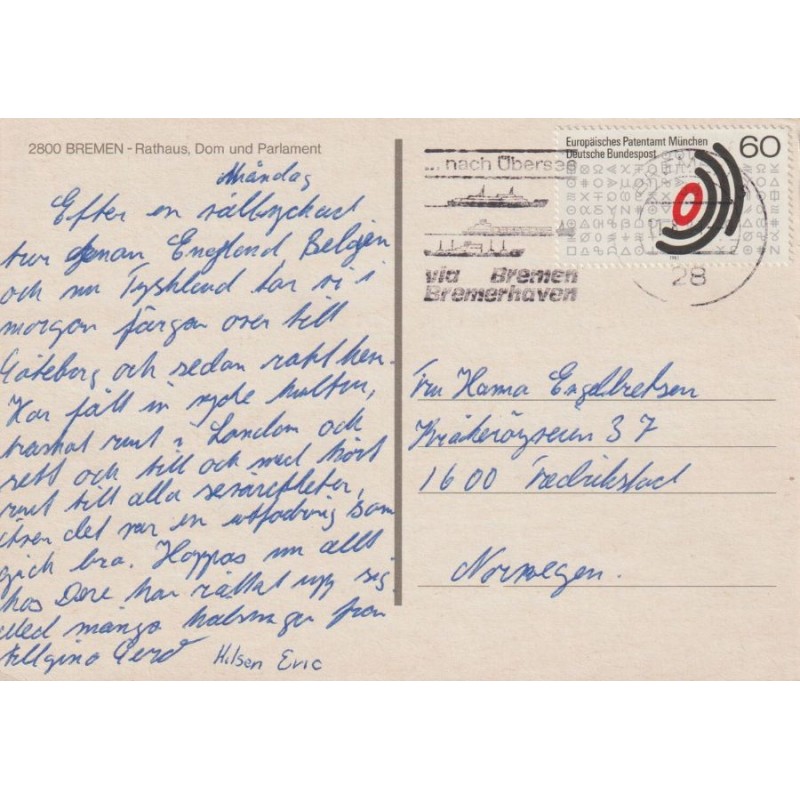 2800 BREMEN - Rathaus, Dom und Parlament
Måndag
Efter en vällyckad
tur genom England Belgien
och nu Tyskland tar vi i
morgon färgan over till
Göteborg och sedan rakt hem.
Har fått in nyde kultur,
traskat runt i London och
sett och till och med kört
runt till alla sevärdheter,
även det var en utfodring som
gick bra. Hoppas nu allt
hos Dere har rättat upp sig.
Med många hälsningar från
Gerd Hilsen Eric
... nach Übersee
via Bremen
Bremerhaven
28
Europäisches Patentamt München
Deutsche Bundespost
60
Fru Hanna Engelbretsen
Kråkerøyveien 37
1600 Fredrikstad
Norwegen.